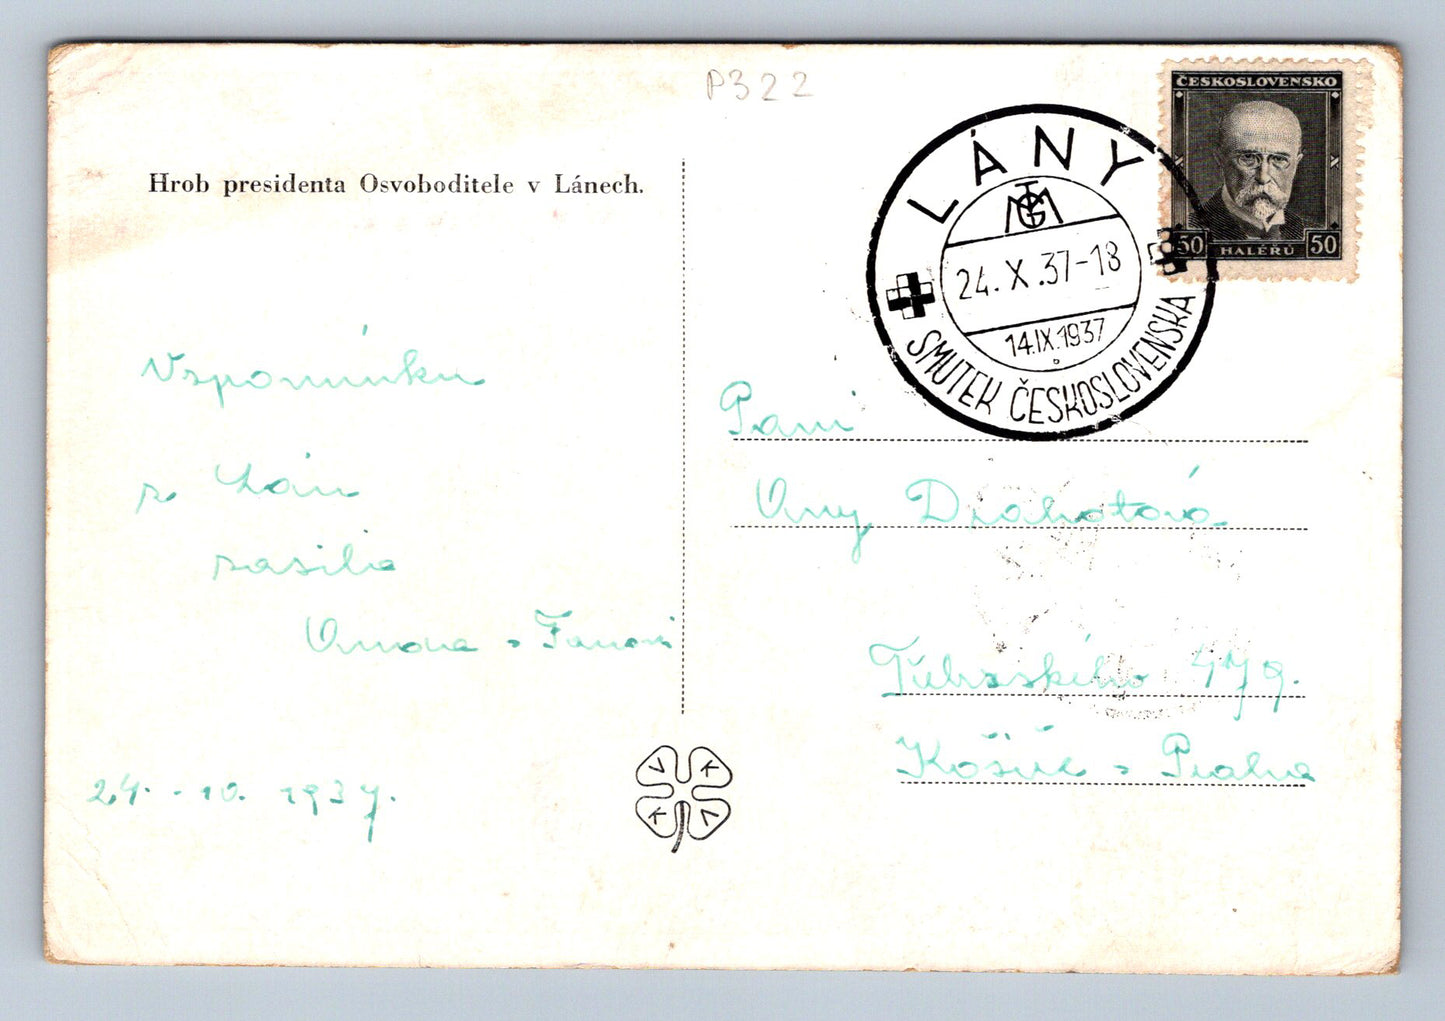 P322
ČESKOSLOVENSKO
50 HALÉŘŮ 50
LÁNY
TGM
24.X.37-18
14.IX.1937
SMUTEK ČESKOSLOVENSKA
Hrob presidenta Osvoboditele v Lánech.
Vzpomínku
z Lán
zasílá
24.-10. 1937.
V K
K V
Paní
Any Drahotová
479.
Košíře - Praha